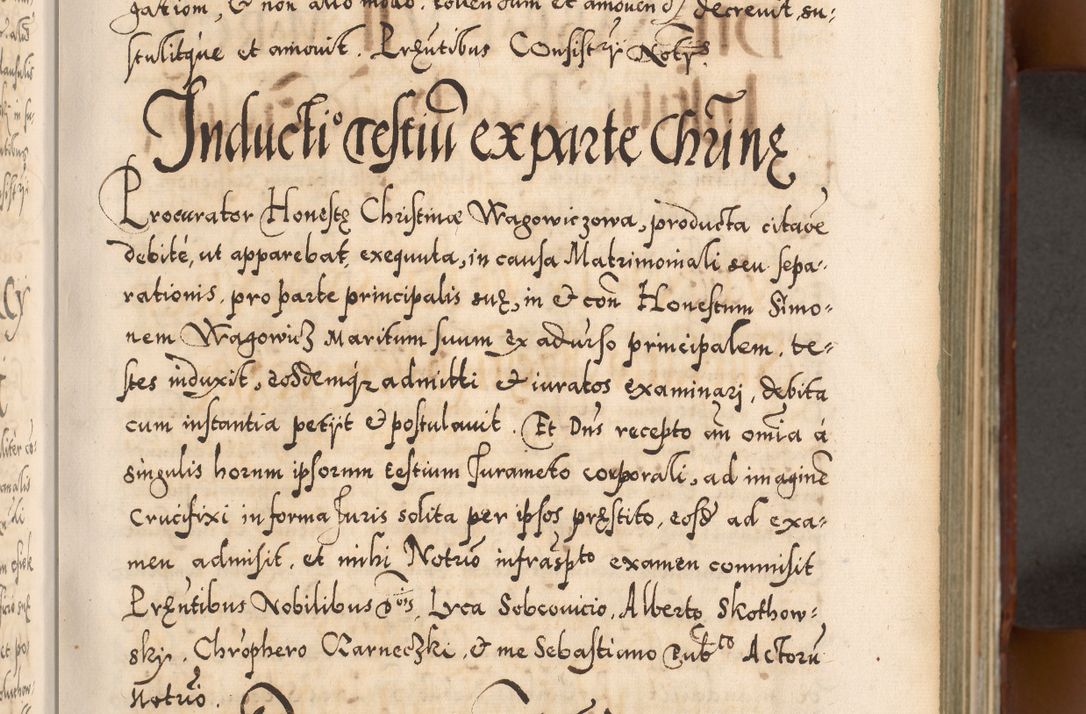 gatiom, & non alio modo, tollendum et amouend decreuit, su-
stulitque et amouit. Prȩntibus Consistry Notrys.
Inductio testiū ex parte Chrinȩ
Procurator Honestȩ Christinæ Wagowiczowa, producta citaõe
debitè, ut apparebat, exequuta, in causa Matrimoniali seu sepa-
rationis, pro parte principalis suȩ, in & con Honestum Simo-
nem Wagowicz Maritum suum ex aduerso principalem, te-
stes induxit, eosdemq3 admitti & iuratos examinarj, debita
cum instantia petijt & postulauit. Et Dns recepto añ omīa à
singulis horum ipsorum testium Iurameto corporali, ad imaginē
Crucifixi in forma Iuris solita per ipsos prȩstito, eosd ad exa-
men admisit, et mihi Notrio infrāspto examen commisit
Prȩntibus Nobilibus Dnis, Lvca Sobcovicio, Alberto Skothow-
sky, Chrophero Czarneczki, & me Sebastiano Pubco Actorū
Notrio.